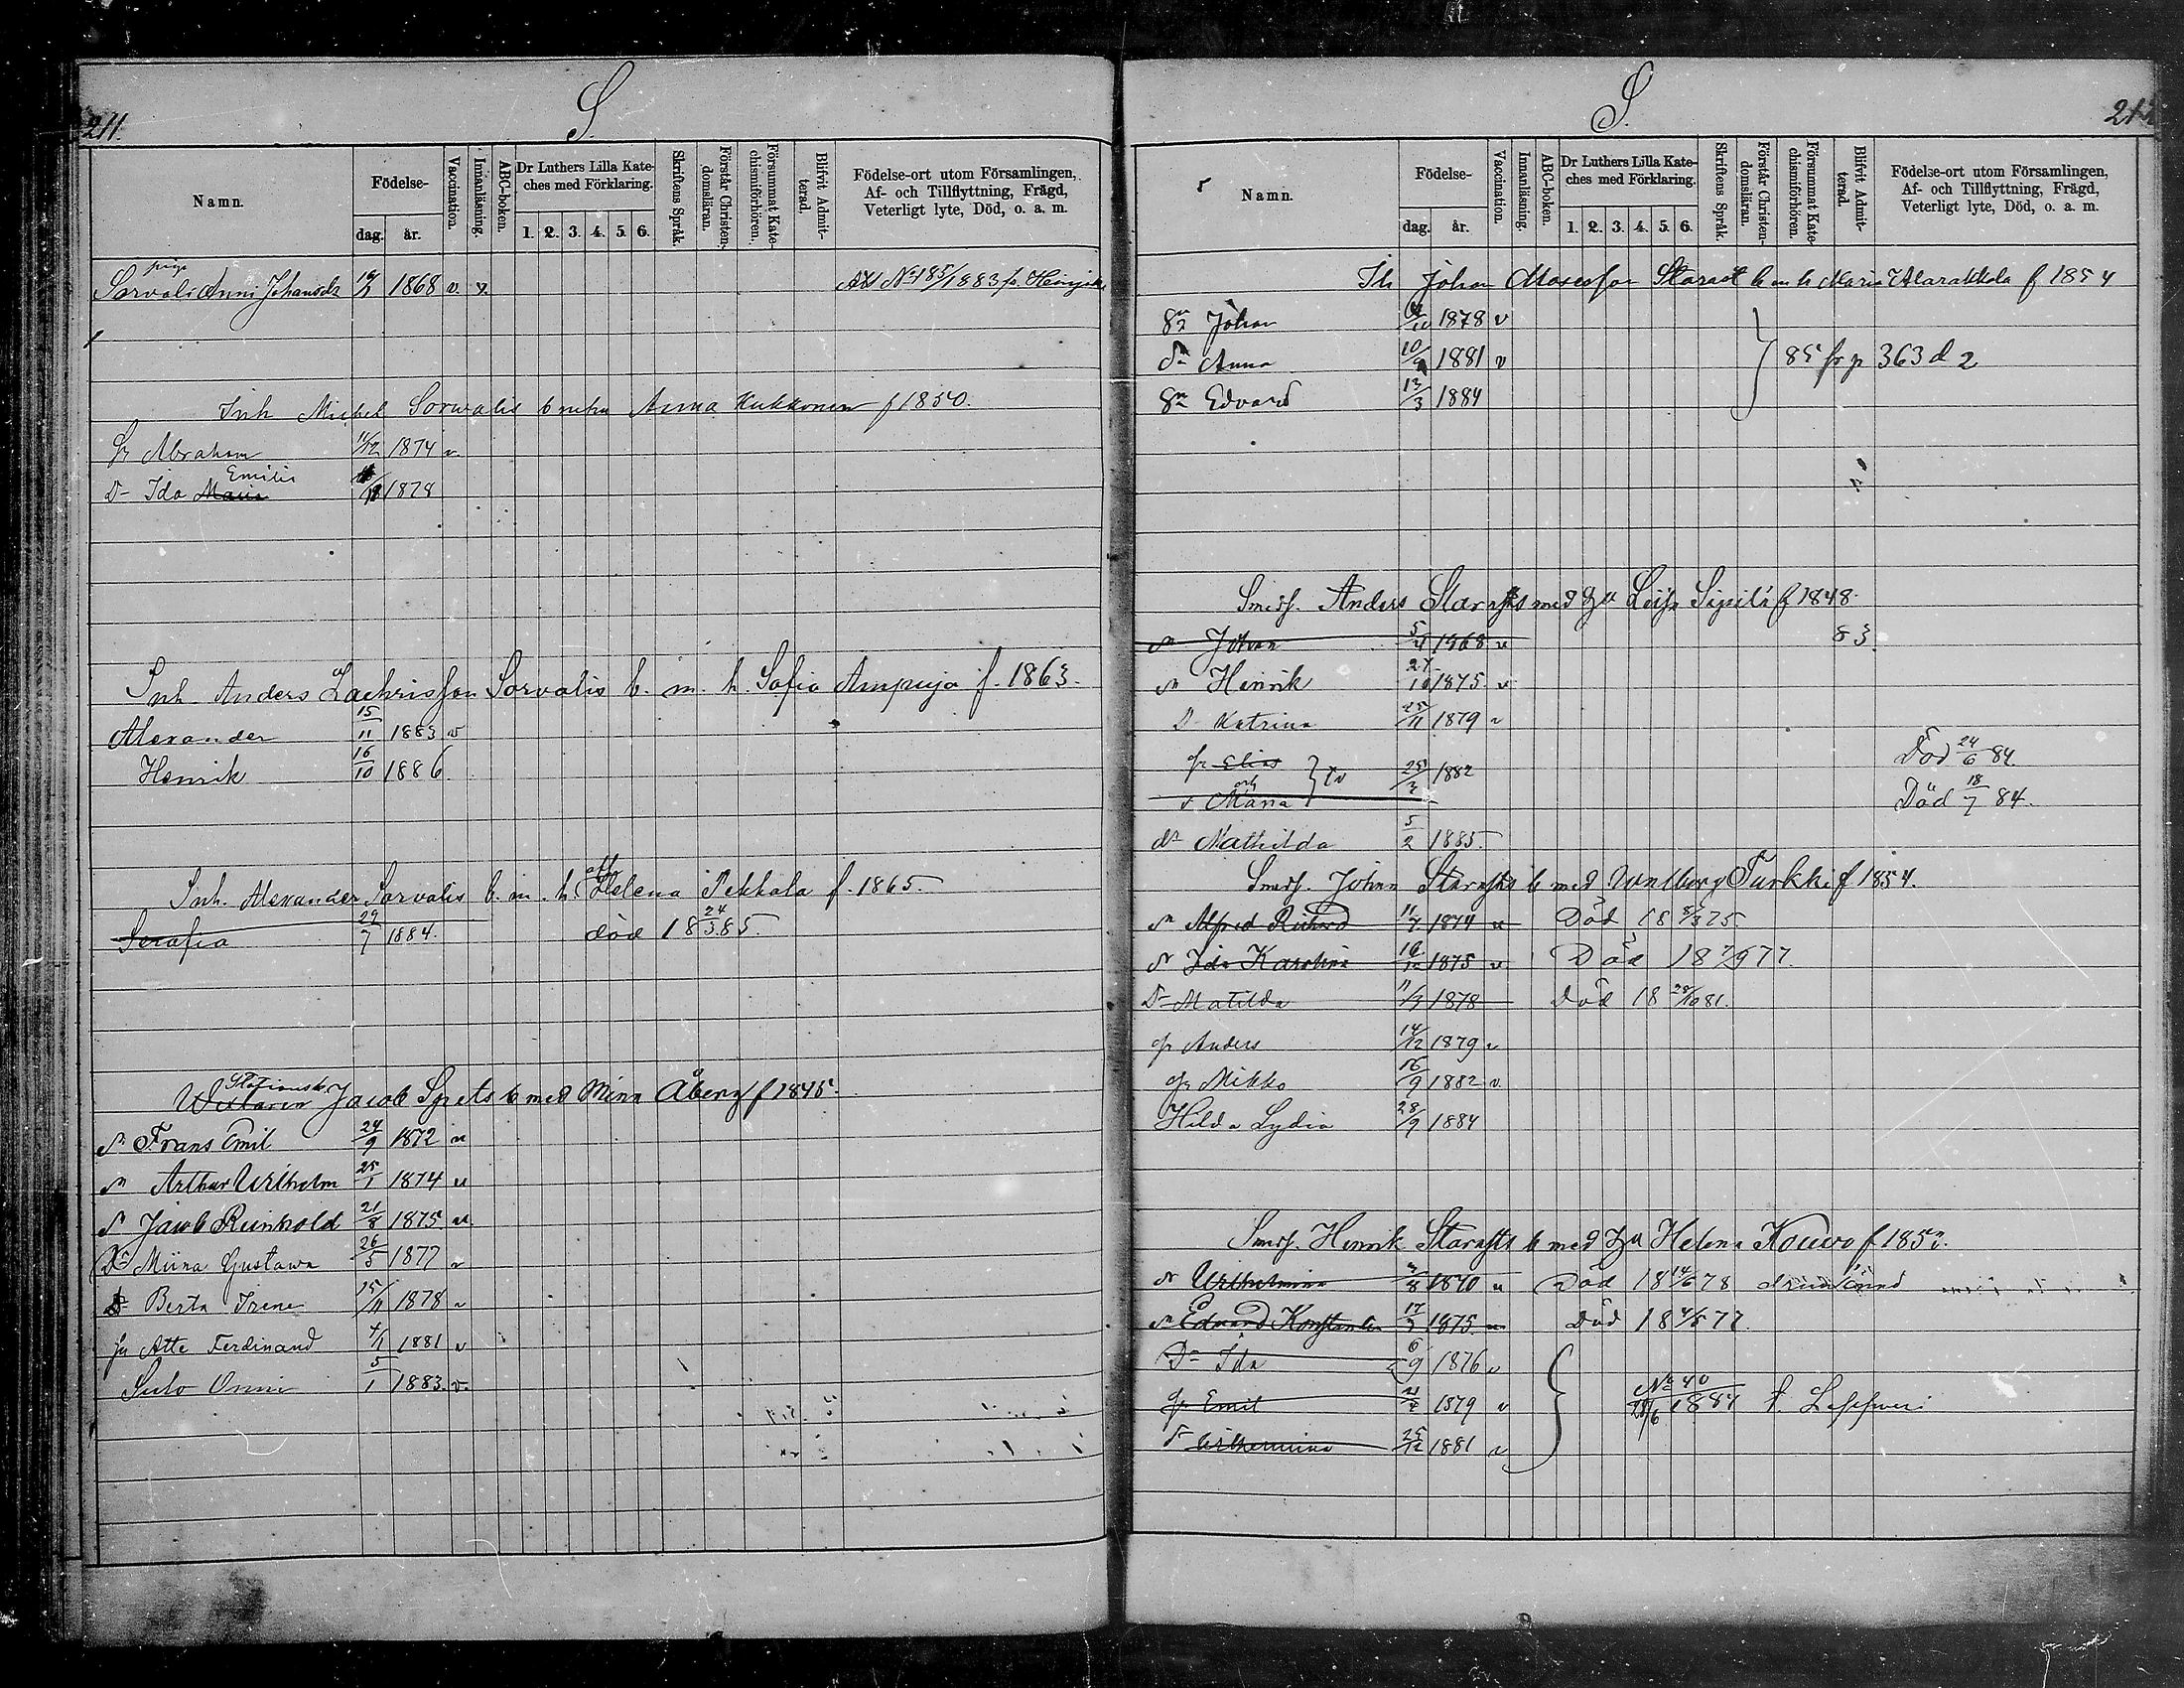 211.
S.
Namn.
Födelse-
dag.
år.
Vaccination.
Innanläsning.
ABC-boken.
Dr Luthers Lilla Kate-
ches med Förklaring.
1. 2. 3. 4. 5. 6.
Skriftens Språk.
Förstår Christen-
domsläran.
Försummat Kate-
chismiförhören.
Blifvit Admit-
terad.
Födelse-ort utom Församlingen,
Af- och Tillflyttning, Frägd,
Veterligt lyte, Död, o. a. m.
piga
Sorvali Anni Johansdr 1868 v. x.
Inh Michel Sorwalis b m hu Anna Kukkonen f 1850.
Abraham 11/12 1874 v
Emilia
Dr Ida Maria 1878
Inh. Anders Zachrisson Sorvalis b. m. h. Sofia Ampuja f. 1863.
Alexander 15/11 1883 v
Henrik 16/10 1886.
Inh. Alexander Sorvalis b. m. h. Helena Pekkala f. 1865.
Serafia 29/7 1884. död 18 24/3 85.
Stations
Jacob Spets b med Minn Åberg f 1845.
Sn Frans Emil 24/9 1872 v
Sn Arthur Wilhelm 25/1 1874 v
Sn Jacob Reinhold 21/8 1875 v.
Dr Miina Gustawa 26/5 1877 v
Dr Berta Irene 15/11 1878 v
Atte Ferdinand 4/1 1881 v
Sulo Onni 5/1 1883. v.
S.
212
Namn.
Födelse-
dag.
år.
Vaccination.
Innanläsning.
ABC-boken.
Dr Luthers Lilla Kate-
ches med Förklaring.
1. 2. 3. 4. 5. 6.
Skriftens Språk.
Förstår Christen-
domsläran.
Försummat Kate-
chismiförhören.
Blifvit Admit-
terad.
Födelse-ort utom Församlingen,
Af- och Tillflyttning, Frägd,
Veterligt lyte, Död, o. a. m.
Ih Johan Mosesson Starast b m h Maria f 1854
Sn Johan 1878 v
Dr Anna 1881 v 85 fr p 363 d 2
Sn Edvard 13/3 1884
Anders Starasts med hu Leisa Sipilä f 1848.
Sn Johan 5/4 1868 v 83
Sn Henrik 1875 v
D Katrina 25/11 1879 v
Elias 1882 Död 24/6 84
och
Maria Död 18/7 84.
dr Mathilda 5/2 1885.
Johan Starasts b med Turkki f 1854.
Sn Alfred Richard 1874 v Död 18 75.
Ida Karolina 1875 v Död 18 7/9 77.
Dr Matilda 1878 Död 18 28/10 81.
Anders 14/12 1879 v
Mikko 16/9 1882 v.
Hilda Lydia 28/9 1884
Henrik Starasts b med hu Helena Kouvo f
Wilhelmina 1870 v Död 18 14/6 78
Sn Edvard Konstantin 1875 v Död 18 77.
Dr Ida 6/9 1876 v
Emil 1879 v No 40 1884 t.
Wilhelmina 25/12 1881 v